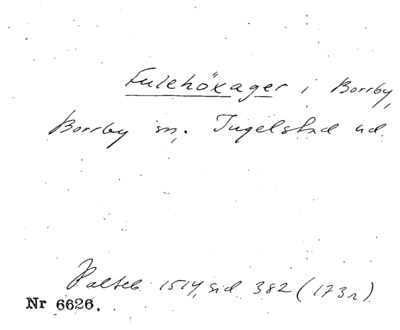 Fulehöxager i Borrby,
Borrby sn, Ingelstad hd.
Palteb. 1514, sid 382 (173r)
Nr 6626.